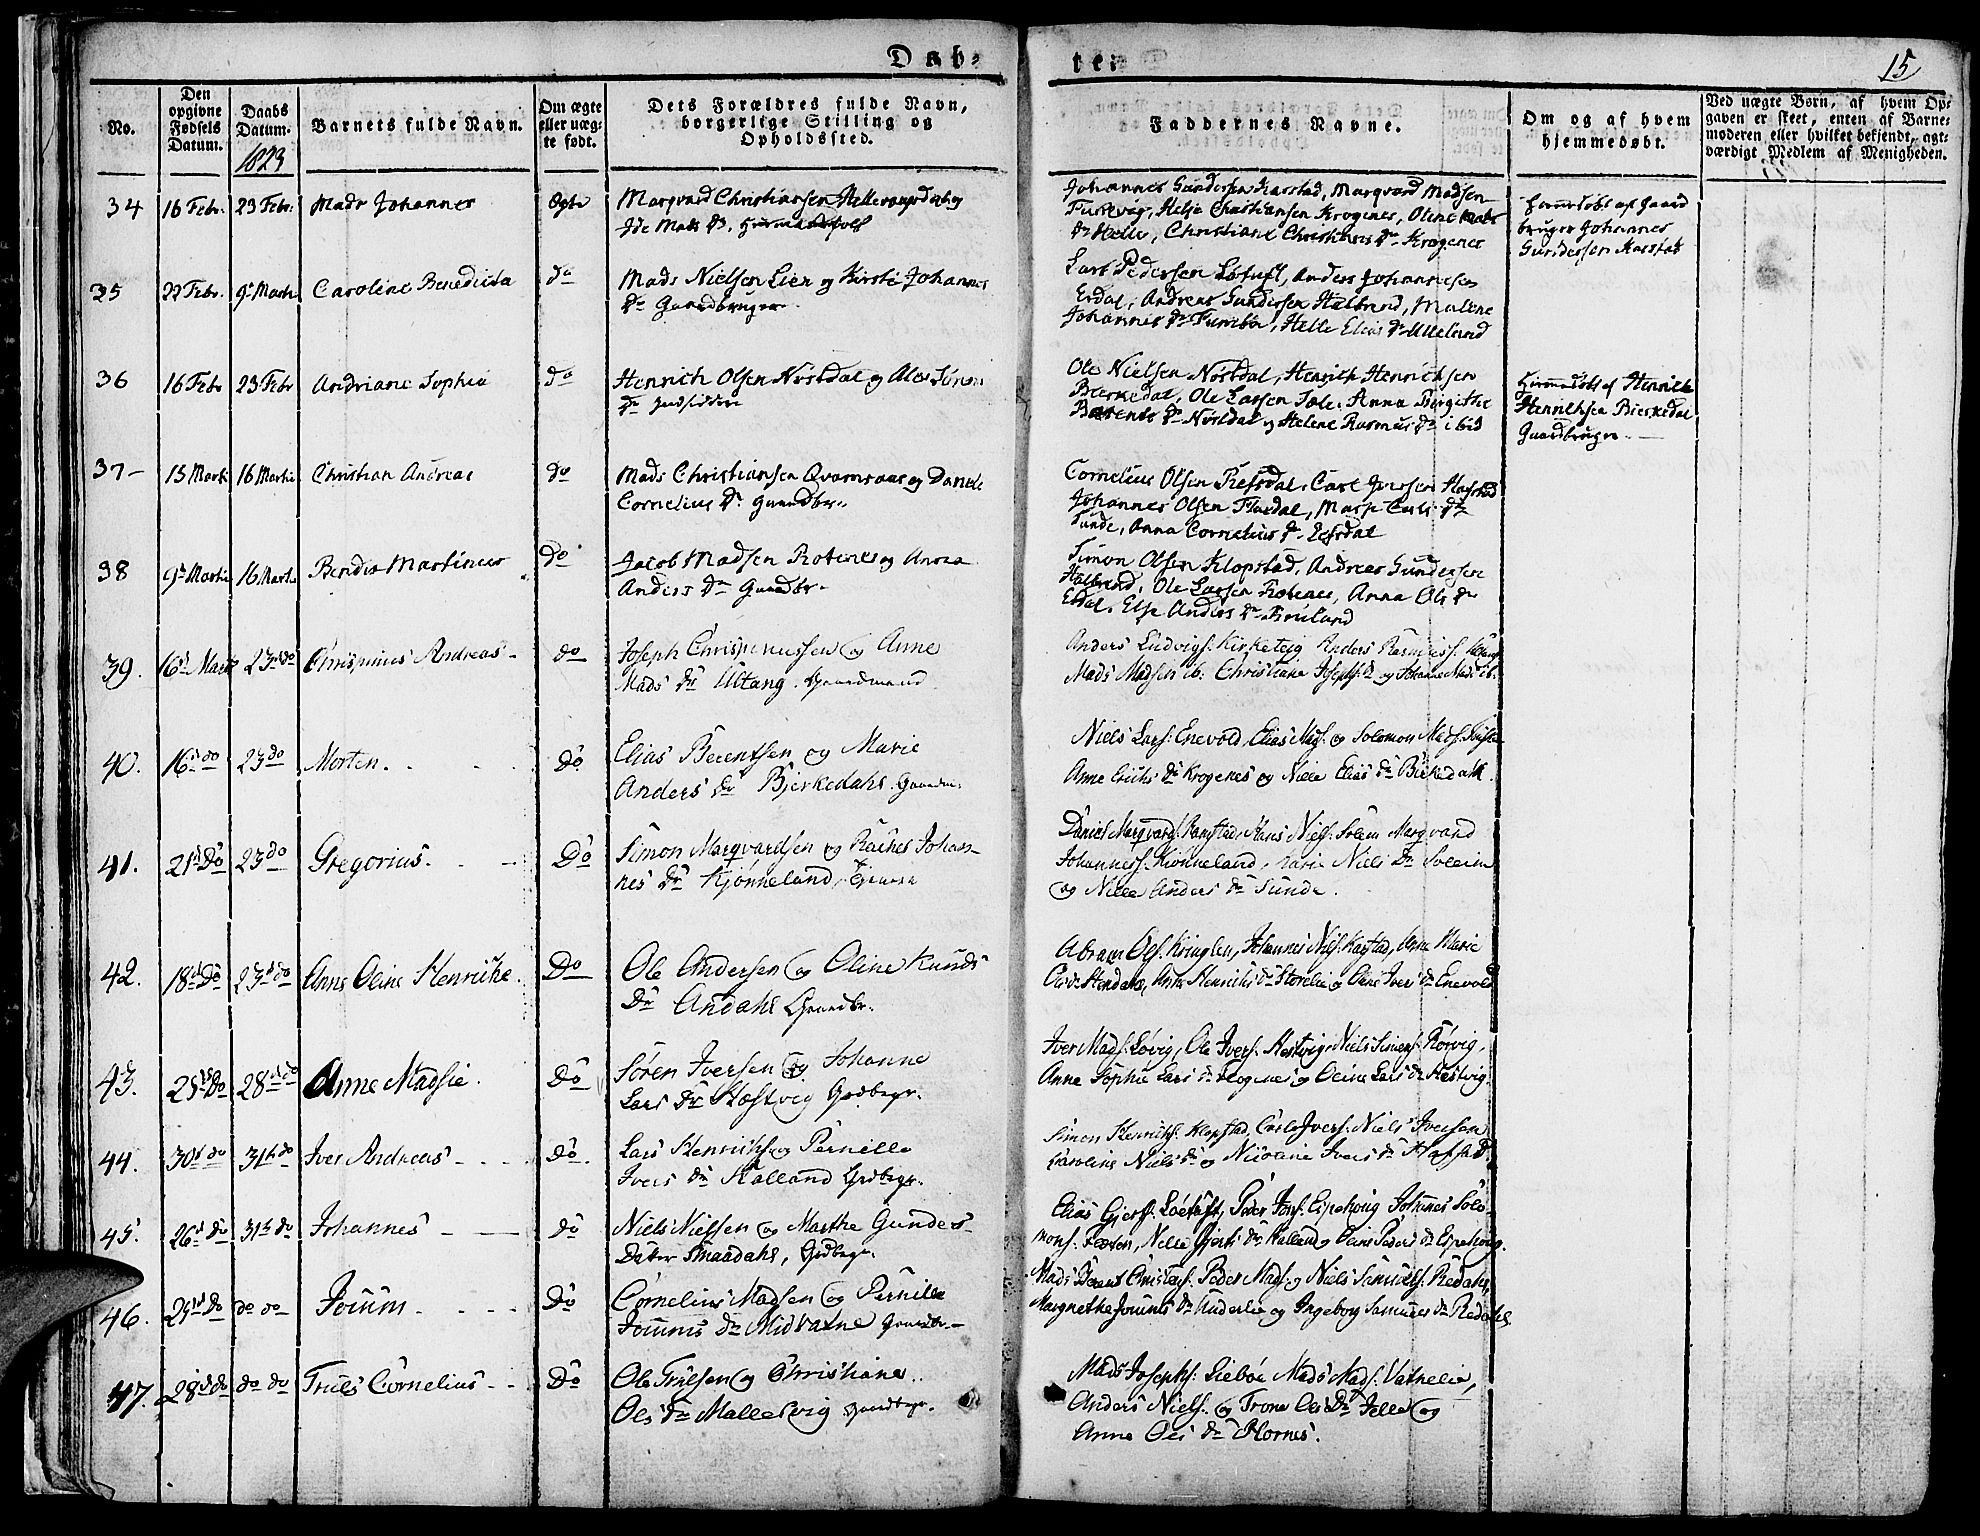 Døbte
15
No.
Den opgivne Fødsels Datum.
Daabs Datum.
1823
Barnets fulde Navn.
Om ægte eller uægte født.
Dets Forældres fulde Navn, borgerlige Stilling og Opholdssted.
Faddernes Navne.
Om og af hvem hjemmedøbt.
Ved uægte Børn, af hvem Opgaven er skeet, enten af Barnemoderen eller hvilket bekjendt, agtværdigt Medlem af Menigheden.
34 16 Febr. 23 Febr. Mads Johannes Ægte
Marqvard Christiansen og
Ide Mads Dr.
Johannes Gundersen Karstad, Marqvard Madsen
Furevig, Helje Christiansen Krogenes, Oline Mads
Dr Helle, Christiane Christians Dr Krogenes
Hiemedøbt af Gaard
bruger Johannes
Gundersen Karstad
35 22 Febr. 9 Martii Caroline Benedicta do
Mads Nielsen Lien og Kirsti Johannes
Dr Gaardbruger
Lars Pedersen Løtuft, Anders Johannesen
Erdal, Andreas Gundersen Halbrend, Malene
Johannes Dr Furebøe, Helle Elias Dr Ullebend
36 16 Febr 23 Febr Andriane Sophia do
Henrich Olsen Nøstdal og Ales Simon
Dr Huusfidder
Ole Nielsen Nøstdal, Henrich Henrichsen
Bierkedal, Ole Larsen Sæle, Anna Birgithe
Berents Dr Nøstdal og Helene Rasmus Dr ibid
Hiemmedøbt af Henrich
Henrichsen Bierkedal
Gaardbruger
37 15 Marti 16 Martii Christian Andreas do
Mads Christiansen Qvamsaas og Danele
Cornelius Dr Gaardbr.
Cornelius Olsen Refsdal, Carl Iversen Hafstad
Johannes Olsen Flusdal, Marje Carls Dr
Sunde, Anna Cornelius Dr Refsdal
38 9 Martii 16 Marti Bendix Martinus Do
Jacob Madsen Rotenes og Anna
Anders Dr Gaardbr.
Simon Olsen Klopstad, Andreas Gundersen
Halbrend, Ole Larsen Rotenes, Anna Ols Dr
Erdal, Else Anders Dr Fruland
39. 16d Marti 23 do Chrispinus Andreas do
Joseph Chrispinussen og Anne
Mads Dr Ultang. Gaardmand
Anders Ludvigs: Kirketeig Anders Rasmuss:
Mads Madsen ib: Christiane Josephs D og Johanne Mads ib.
40. 16d do 23 do Morten. Do
Elias Berentsen og Marie
Anders Dr Bjerkedahl. Gaardm.
Niels Lars: Enevold, Elias Mads: og Solomon Mads:
Anne Erichs Dr Krogenes og Nille Elias Dr Birkedahl.
41. 21d Do 23 do Gregorius. Do
Simon Marqvardsen og Rachel Johan-
nes Dr Kjønneland,
Daniel Marqvards: Ramstad, Hans Niels: Soleim Marqvard
Johanness: Kiønneland, Marie Niels Dr Soleim
og Nille Anders Dr Sunde.
42. 18d Do 23d do Anne Oline Henriche. Do
Ole Andersen og Oline Knuds
Dr Andahl Gaardbr.
Abram Ols: Kringlen, Johannes Niels: Karstad, Anne Marie
Ols Dr Hendahl, Anne Henrichs Dr Storelie og Oline Iver Dr Enevold
43. 25d Do 28d do Anne Madsie. Do
Søren Iversen og Johanne
Lars Dr Hæstvig Grdbrgr.
Iver Mads: Løvig, Ole Ivers: Hestvig, Niels Simens: Rørvig,
Anne Sophie Lars Dr Krogenes og Oline Lars Dr Hestvig.
44. 30d do 31d do Iver Andreas Do.
Lars Henrichs: og Pernille
Ivers Dr Kalland Grdbrgr.
Simon Henrichs: Klopstad, Carl Ivers: Niels Iversen
Karoline Niels Dr og Nicoline Ivers Dr Hafstad.
45. 26d Do 31d do Johannes Do
Niels Nielsen og Marthe Gunders
Datter Smaadahl, Grdbrgr.
Elias Gjers: Løetuft, Peder Jons: Espehoug Johannes Solo-
mons: Nille Gjerts Dr Kalland og Oline Peders Dr Espehoug.
46. 29d Do do do Joüm Do
Cornelius Madsen og Pernille
Joüms Dr Midvatne Gaardbr.
Mads Berent Christens: Peder Mads: og Niels Samuels: Redahl,
Margrethe Joüms Dr Anderlie og Ingeborg Samuels Dr Redahl
47. 28d do do do Truls Cornelius Do
Ole Trulsen og Christiane
Ols Dr Mallesvig Gaardbgr.
Mads Josephs: Liebøe Mads Mads: Vatnelie,
Anders Niels: og Trone Ols Dr Jelle og
Anne Ols Dr Hornes.